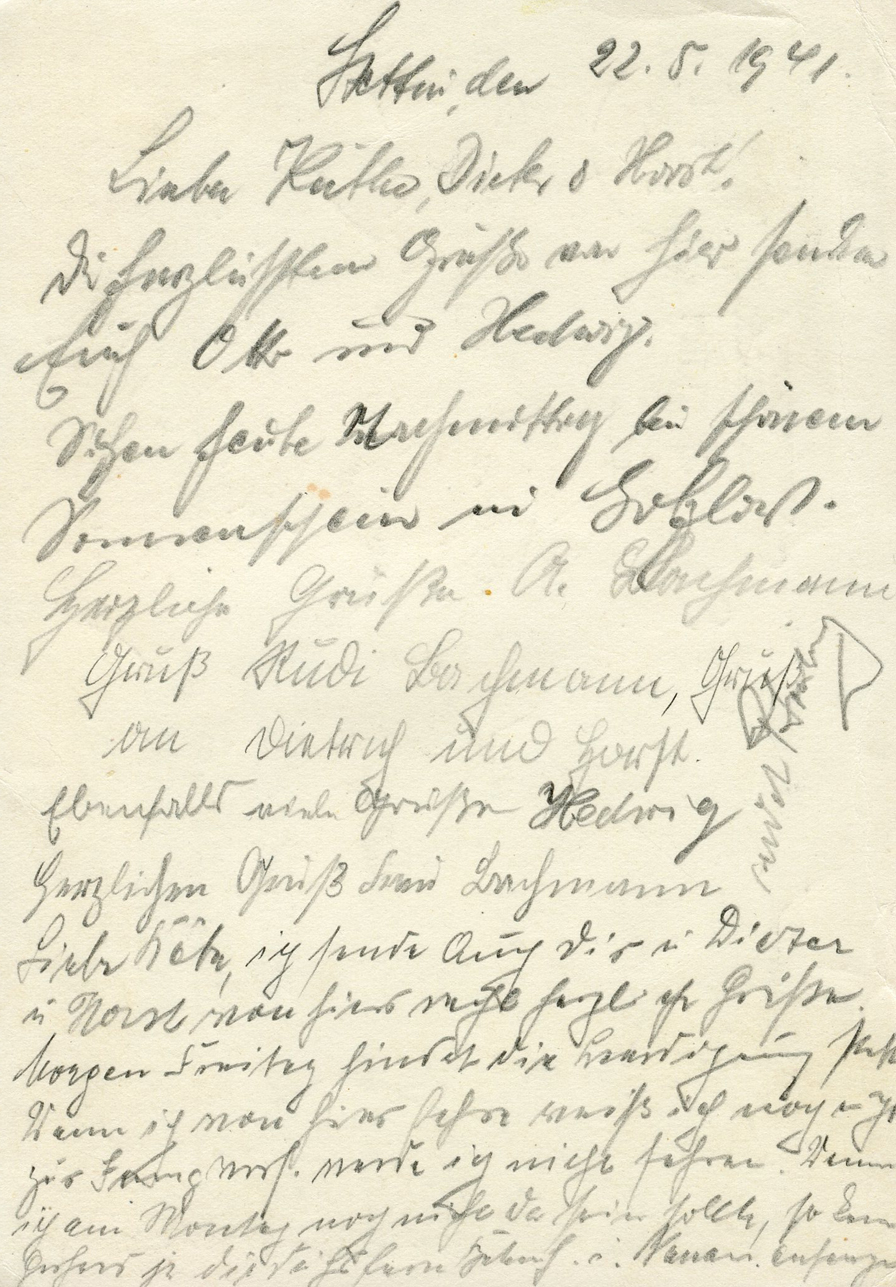 Stettin, den 22.5.1941.
Liebe Käthe, Dieter u Horst!
Die herzlichsten Grüße von hier senden
Euch Otto und Hedwig.
Sitzen heute Nachmittag bei schönem
Sonnenschein in Gotzlow.
Herzliche Grüße A. Bachmann
Gruß Rudi Bachmann, Gruß
an Dietrich und Horst.
Ebenfalls viele Grüße Hedwig
Herzlichen Gruß Frau Bachmann
Liebe Käte, ich sende Auch dir u Dieter
u Horst von hier recht herzliche Grüße.
Morgen Freitag findet die Beerdigung statt
Wann ich von hier fahre weiß ich noch nicht
zur werde ich nicht fahren. Wenn
ich am Montag noch nicht da sein sollte, so